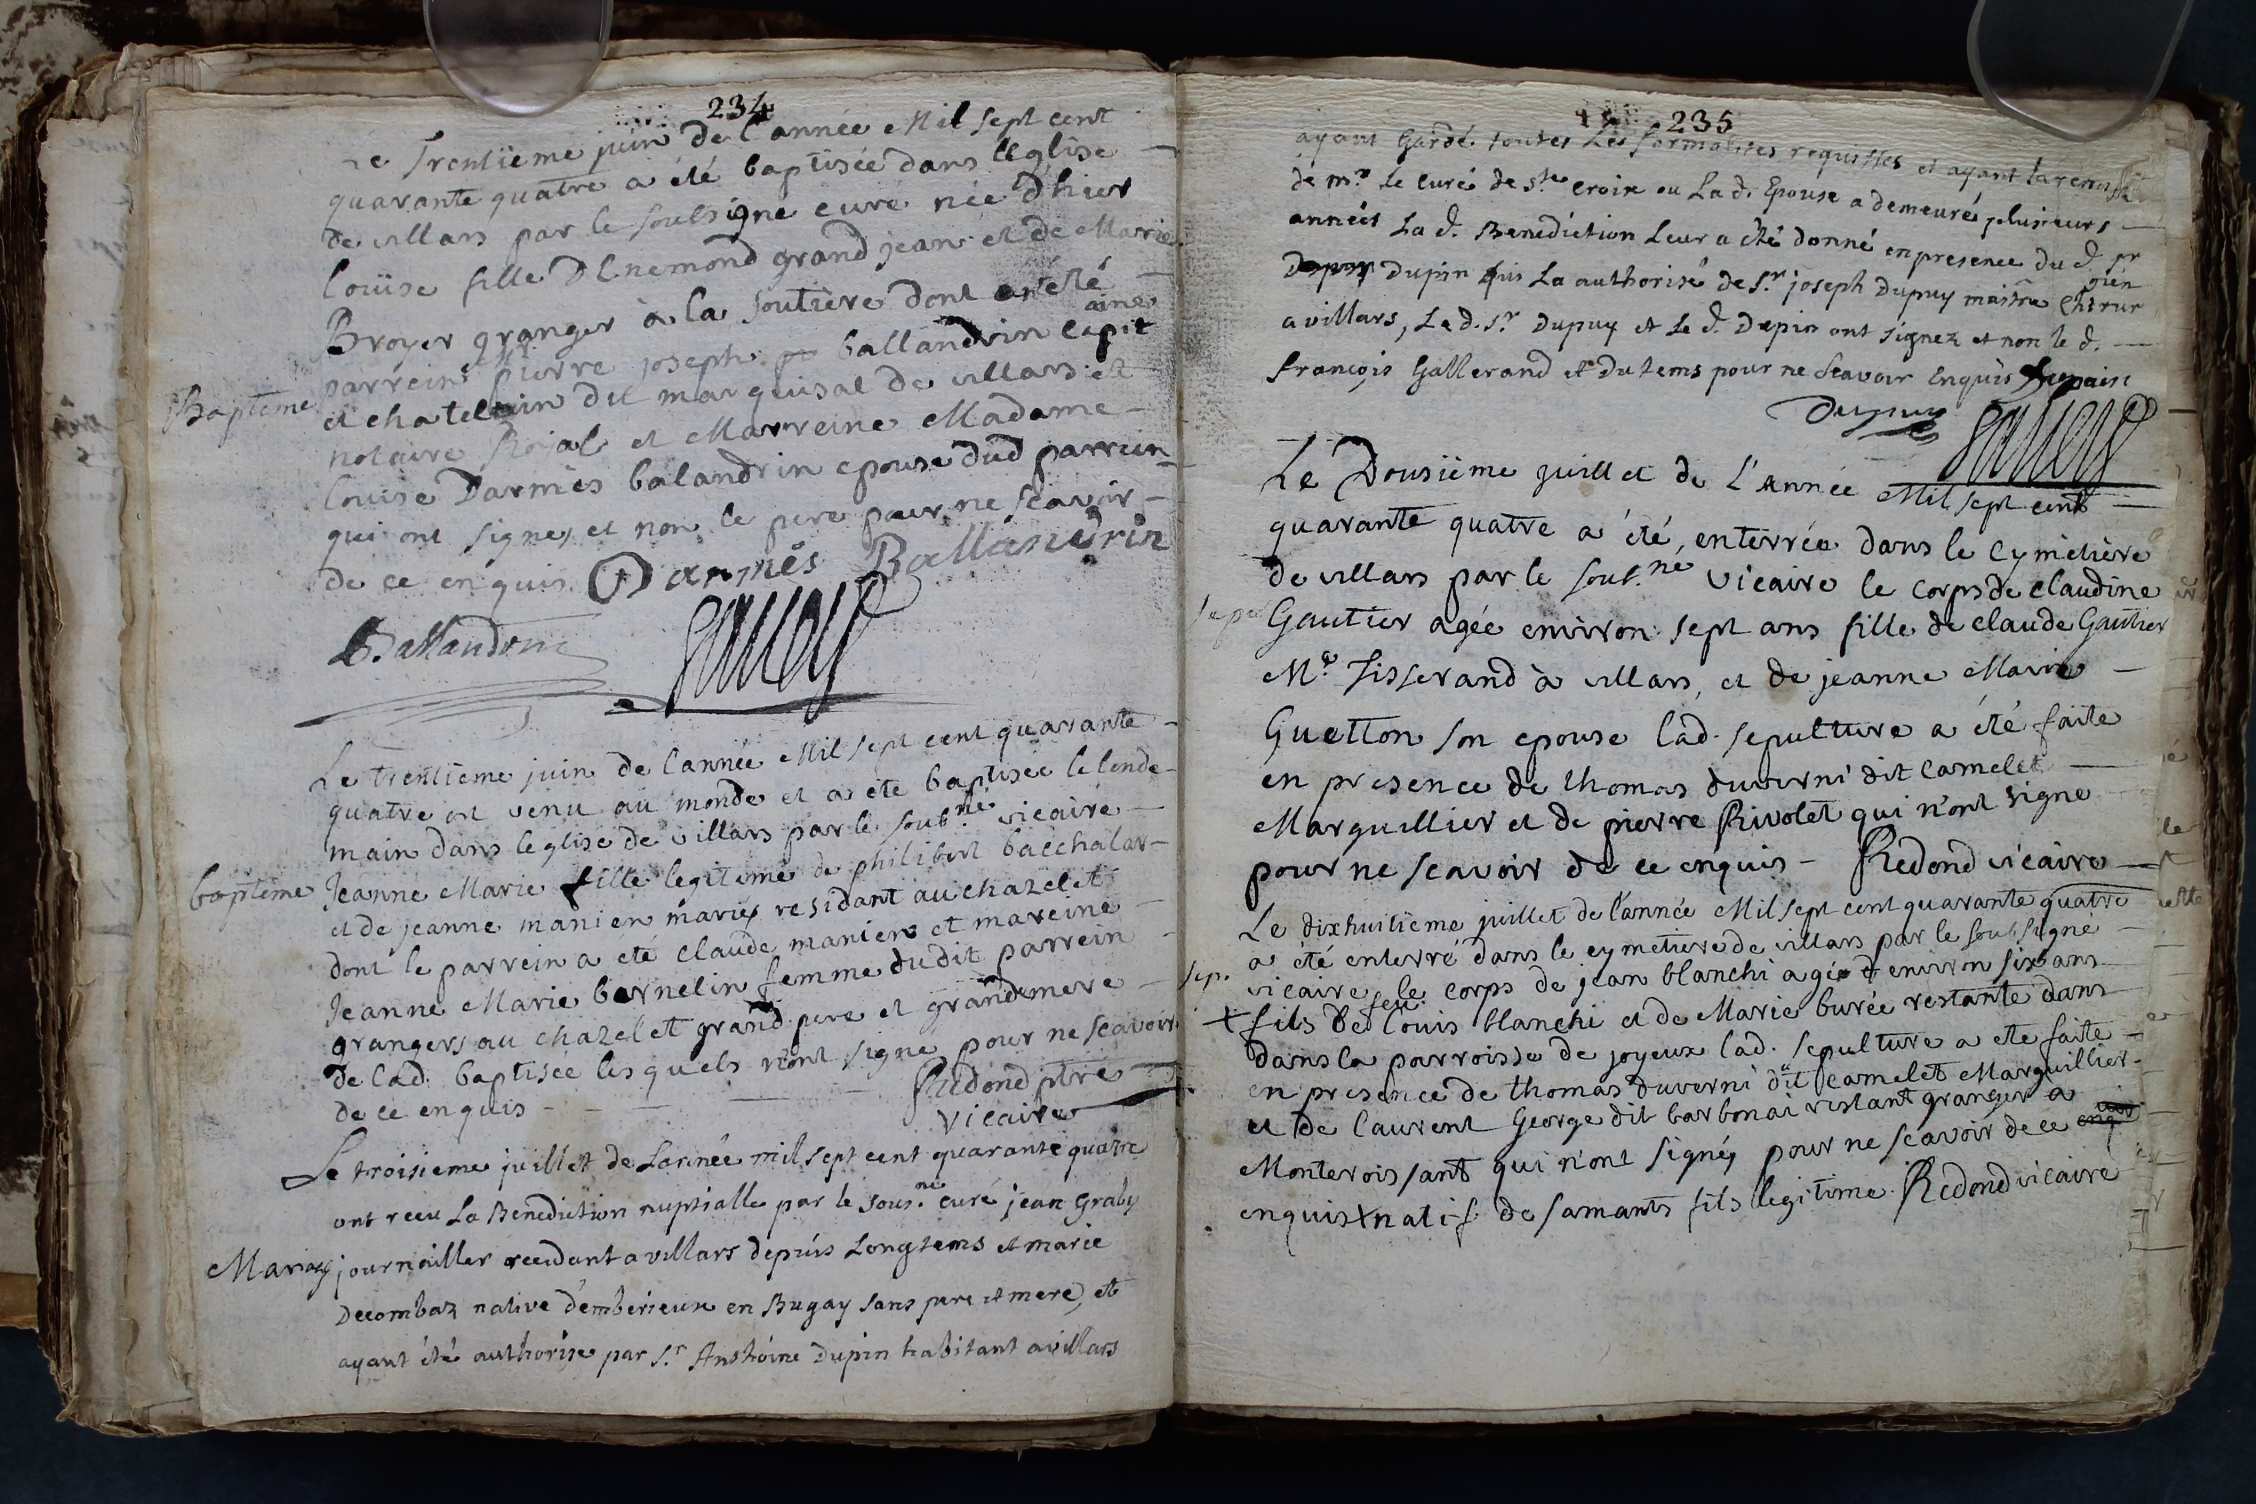 234
Le Trentiéme juin de l'année Mil sept cent
quarante quatre a été baptisée dans l'Eglise
de villars par le soubsigné curé née d'hier
Loüise fille d'Enemond grand jean et de Marie
Broyer granger à la soutiere dont a été
parrein Sr pierre joseph ballandrin capit aine
Baptême
et chatelain du marquisat de villars et
notaire Roïal et Marreine Madame
Louise Darmès balandrin epouse dud parrein
qui ont signez et non le pere pour ne scavoir
de ce enquis Darmés Ballandrin
Ballandrin
Le trentieme juin de l'année Mil sept cent quarante
quatre est venu au monde et a été baptisée le lende
main dans l'eglise de villars par le soub.né vicaire
baptême
Jeanne Marie fille legitime de philibert bacchalar
et de jeanne manier mariez residant au chazelet
dont le parrein a été Claude manier et mareine
Jeanne Marie bernelin femme dudit parrein
grangers au chazelet grand pere et grandemere
de lad. baptisée lesquels n'ont signe pour ne scavoir
de ce enquis
Redond ptre
vicaire
Le troisieme juillet de L'année mil sept cent quarante quatre
ont recu La Benediction nuptialle par le sous.né curé jean Graby
Mariag
journailler residant a villars depuis Longtems et marie
Decombaz native d'emberieux en Bugay sans pere et mere, et
ayant été authorise par s.r Anthoine Dupin habitant a villars
235
ayant Gardé toutes Les formalites requisses et ayant La remisse
de m.r Le Curé de s.te Croix ou La d. Epouse a demeuré plusieurs
années La d. Benediction Leur a été donné en presence du d. sr
Dupin quis La authorisé de s.r joseph Dupuy maistre Chirur gien
a villars, Le d. s.r Dupuy et Le d. Dupin ont signez et non le d.
François Gallerand et Dutems pour ne Scavoir Enquis Dupain
Dupuy
Le Dousiéme juillet de L'Année Mil sept cent
quarante quatre a été, enterrée dans le Cymetière
de villars par le sous.né vicaire le corps de claudine
sepu
Gautier agée environ sept ans fille de claude Gautier
M.e Tisserand à villars, et de jeanne Marie
Guetton son epouse lad. sepulture a été faite
en presence de thomas duverni dit Camelet
Marguillier et de pierre Rivolet qui n'ont signe
pour ne scavoir de ce enquis - Redond vicaire
Le dixhuitieme juillet de l'année Mil sept cent quarante quatre
a été enterré dans le cymetiere de villars par le soubsigné
sep.
vicaire le corps de jean blanchi agé d'environ six ans
+ fils de feu Louis blanchi et de Marie burée restante dans
dans la parroisse de joyeux lad. sepulture a ete faite
en presence de thomas duverni dit Camelet Marguillier
et de Laurent George dit barbonai restant granger a
Monteroissant qui n'ont signéz pour ne scavoir de ce
enquis + natif de samants fils legitime. Redond vicaire